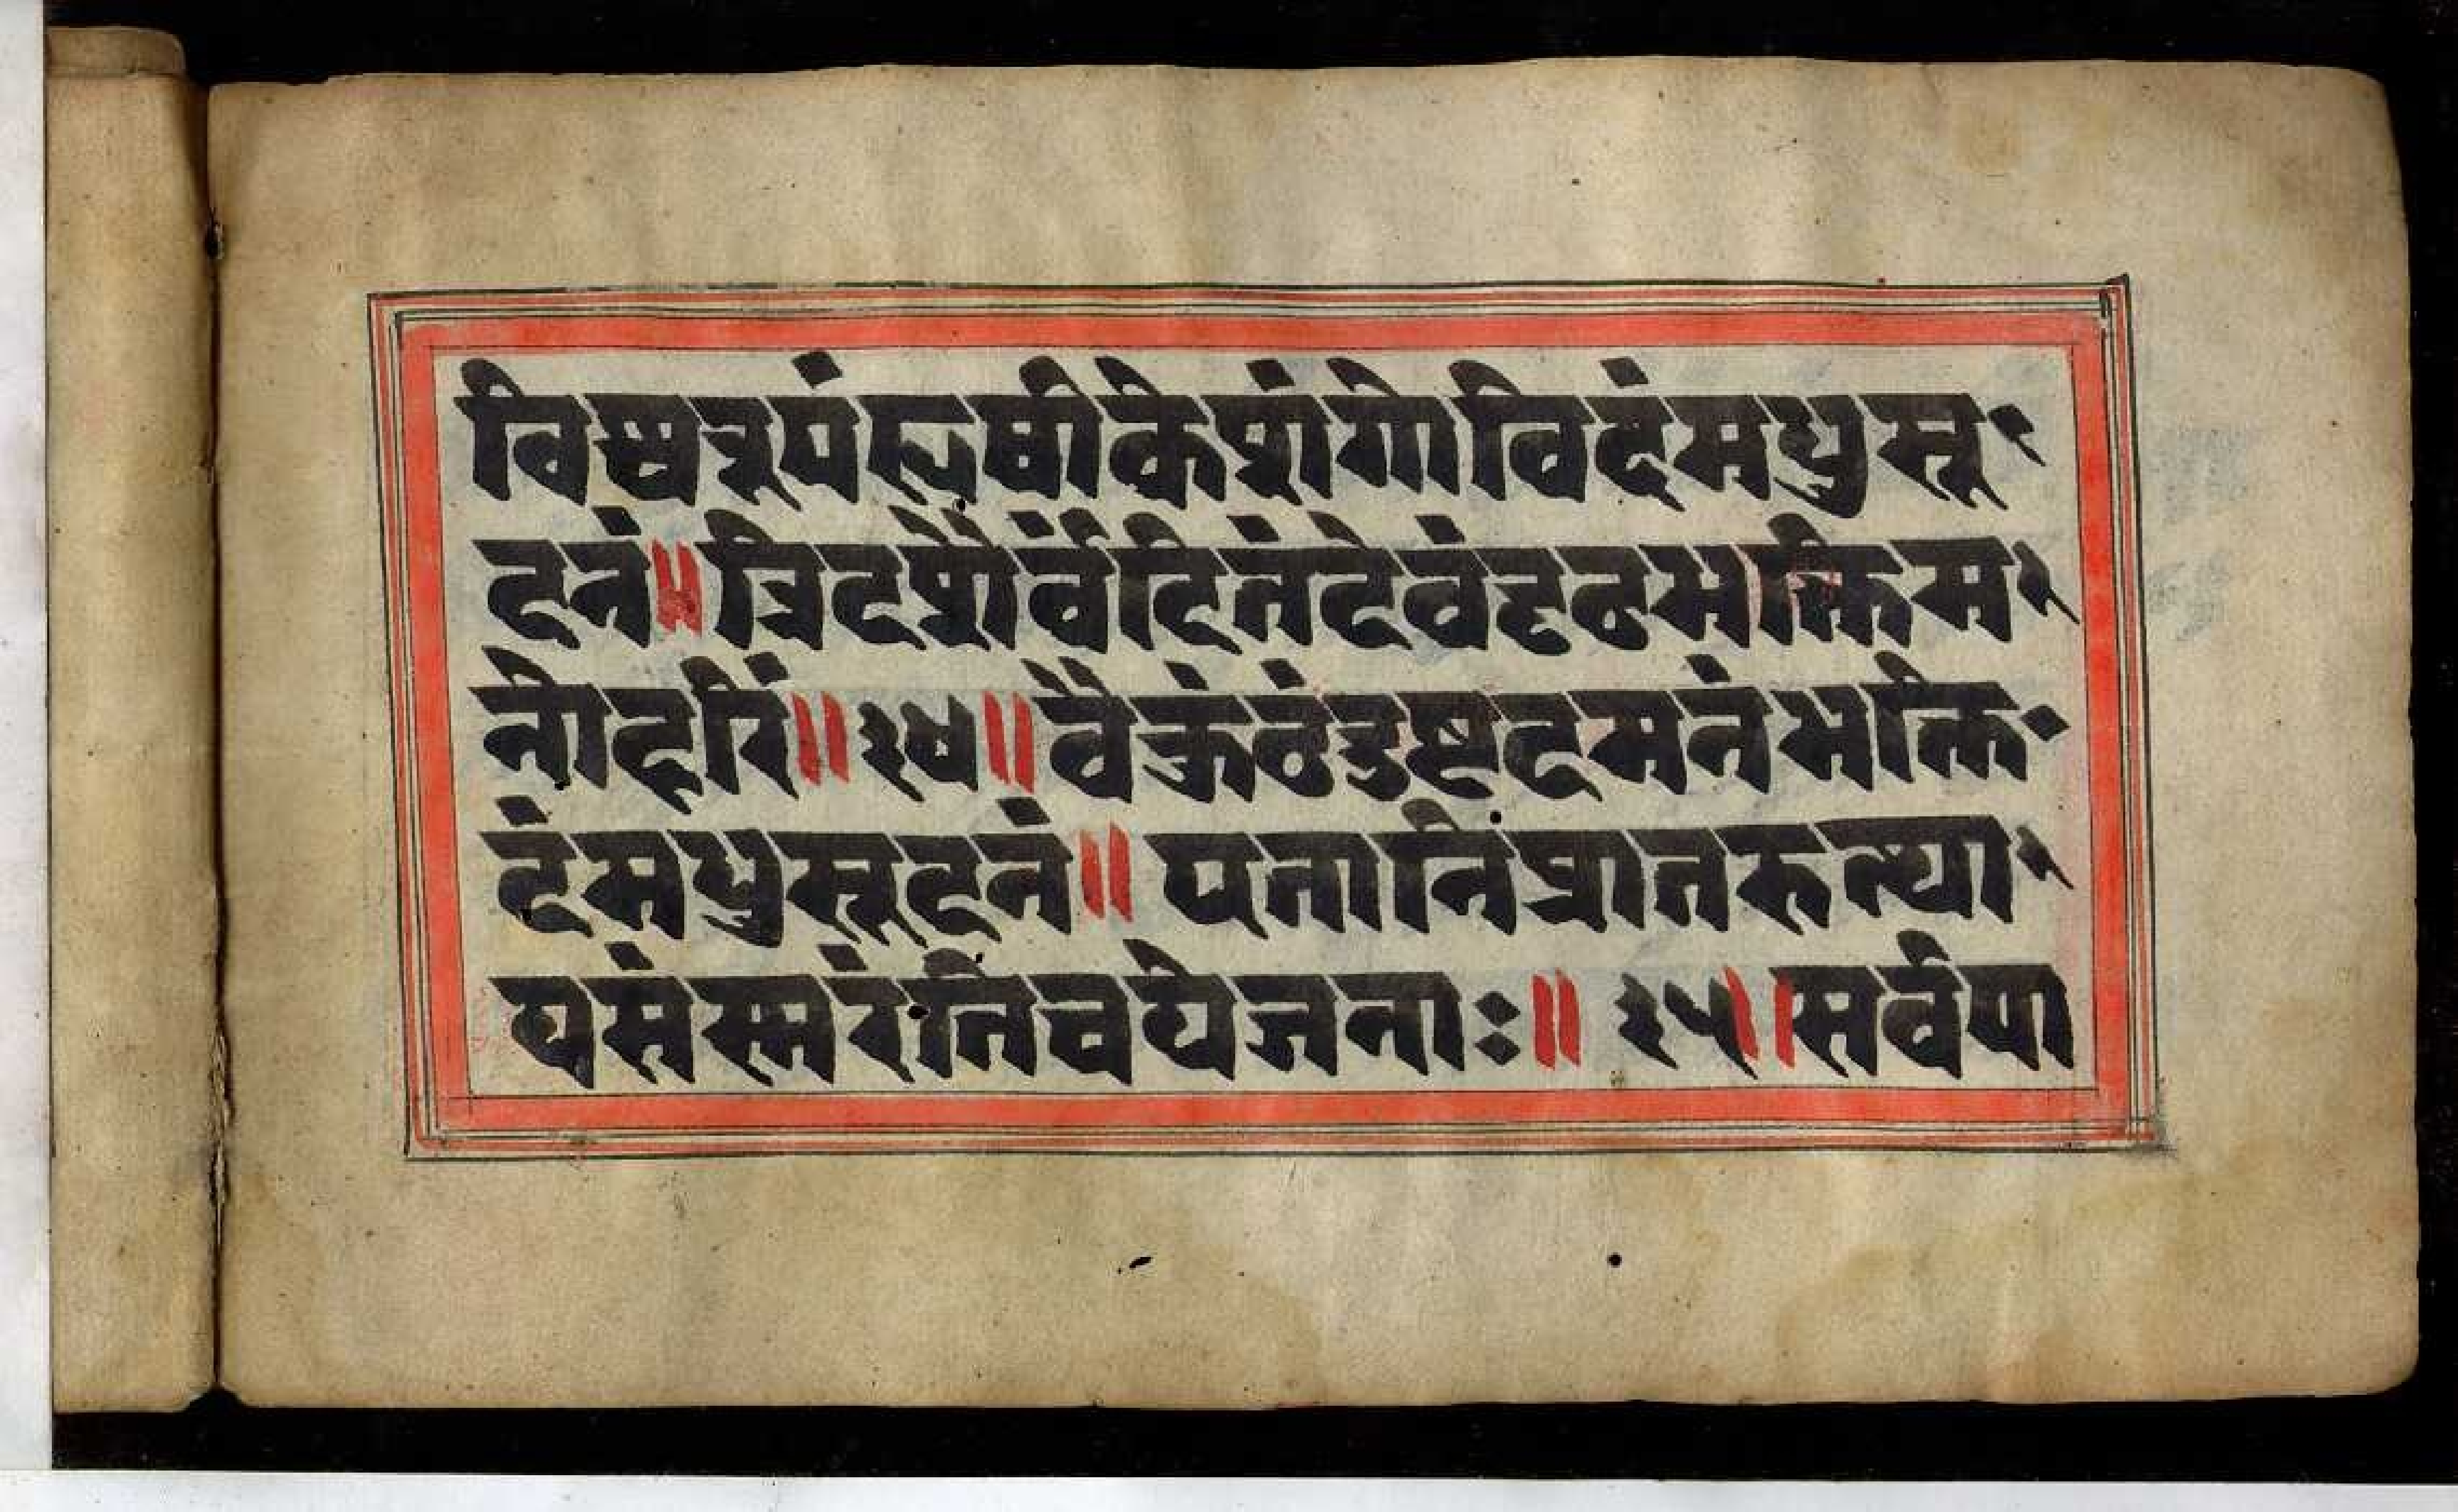 विश्वरूपंहृषीकेशंगोविदंमधुसू
दनं॥त्रिदशैर्वंदितंदेवंदृढभक्तिम
नोहरिं॥३४॥वैकुंठंदुष्टदमनंभक्ति
दंमधुसूदनं॥एतानिप्रातरुत्था
यसंस्मरंतिचयेजनाः॥३५॥सर्वपा